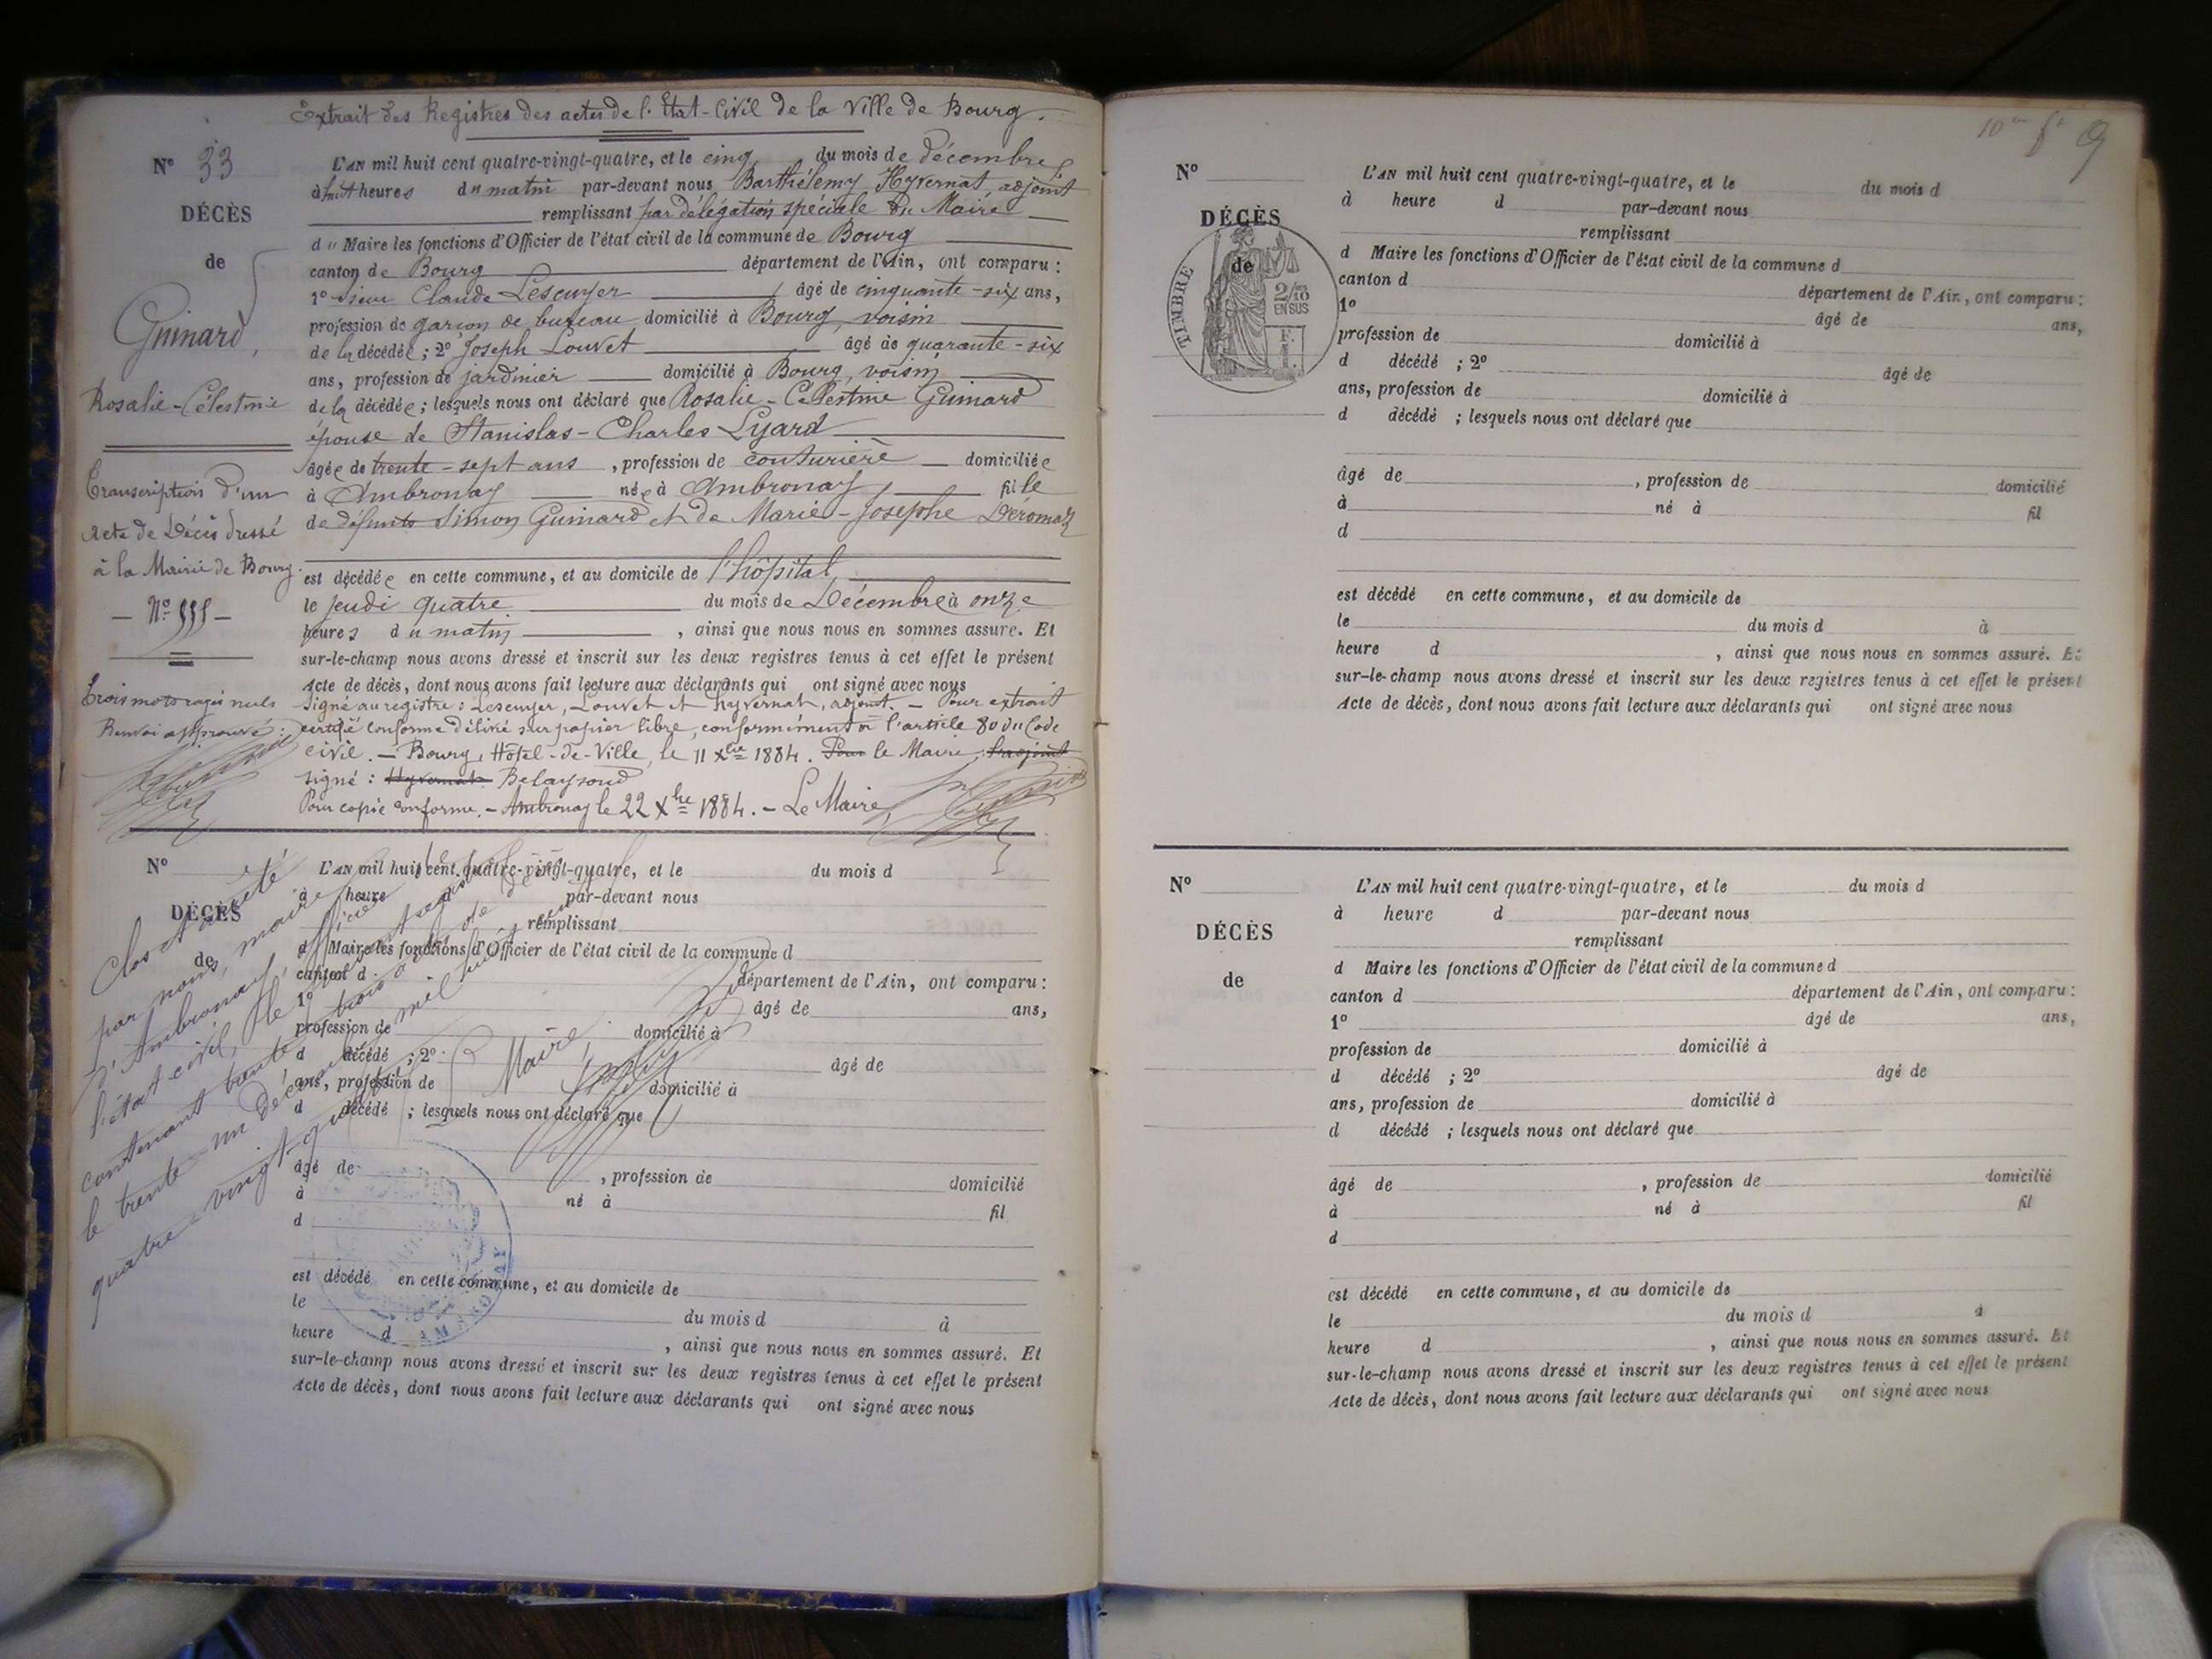 Extrait des Registres des actes de l'Etat-Civil de la Ville de Bourg.
N° 33
DÉCÈS
de
Guinard,
Rosalie-Célestine
Transcription d'un
acte de Décès dressé
à la Mairie de Bourg.
- N° 555 -
Trois mots rayés nuls
Renvoi approuvé :
L'AN mil huit cent quatre-vingt-quatre, et le cinq du mois de décembre,
à huit heures du matin par-devant nous Barthélemy Hyvernat, adjoint
remplissant par délégation spéciale du Maire
d " Maire les fonctions d'Officier de l'état civil de la commune de Bourg
canton de Bourg département de l'Ain, ont comparu :
1° sieur Claude Lescuyer, âgé de cinquante-six ans,
profession de garçon de bureau domicilié à Bourg, voisin
de la décédée ; 2° Joseph Louvet âgé de quarante-six
ans, profession de jardinier domicilié à Bourg, voisin
de la décédée ; lesquels nous ont déclaré que Rosalie-Célestine Guinard
épouse de Stanislas-Charles Lyard
âgée de trente-sept ans, profession de couturière domiciliée
à Ambronay née à Ambronay, fille
de défunts Simon Guinard et de Marie-Josephe Deromaz
est décédée en cette commune, et au domicile de l'hôpital,
le jeudi quatre du mois de Décembre à onze
heures du matin, ainsi que nous nous en sommes assuré. Et
sur-le-champ nous avons dressé et inscrit sur les deux registres tenus à cet effet le présent
Acte de décès, dont nous avons fait lecture aux déclarants qui ont signé avec nous
Signé au registre : Lescuyer, Louvet et Hyvernat, adjoint. - Pour extrait
certifié conforme délivré sur papier libre, conformément à l'article 80 du Code
civil. - Bourg, Hôtel-de-Ville, le 11 Xbre 1884. Pour le Maire, l'adjoint
signé : Hyvernat Belaysoud
Pour copie conforme. - Ambronay le 22 Xbre 1884. - Le Maire,
N°
DÉCÈS
de
L'AN mil huit cent quatre-vingt-quatre, et le du mois d
à heure d par-devant nous
remplissant
d Maire les fonctions d'Officier de l'état civil de la commune d
canton d département de l'Ain, ont comparu :
1° âgé de ans,
profession de domicilié à
d décédé ; 2° âgé de
ans, profession de domicilié à
d décédé ; lesquels nous ont déclaré que
âgé de , profession de domicilié
à né à fil
d
est décédé en cette commune, et au domicile de
le du mois d à
heure d , ainsi que nous nous en sommes assuré. Et
sur-le-champ nous avons dressé et inscrit sur les deux registres tenus à cet effet le présent
Acte de décès, dont nous avons fait lecture aux déclarants qui ont signé avec nous
Clos et arrêté
par nous, maire
d'Ambronay, officier de
l'état civil, le présent registre
contenant trente trois actes de décès
le trente-un décembre mil huit cent
quatre-vingt-quatre
Maire,
10me ft 9
N°
DÉCÈS
de
TIMBRE
2/10
EN SUS
L'AN mil huit cent quatre-vingt-quatre, et le du mois d
à heure d par-devant nous
remplissant
d Maire les fonctions d'Officier de l'état civil de la commune d
canton d département de l'Ain, ont comparu :
1° âgé de ans,
profession de domicilié à
d décédé ; 2° âgé de
ans, profession de domicilié à
d décédé ; lesquels nous ont déclaré que
âgé de , profession de domicilié
à né à fil
d
est décédé en cette commune, et au domicile de
le du mois d à
heure d , ainsi que nous nous en sommes assuré. Et
sur-le-champ nous avons dressé et inscrit sur les deux registres tenus à cet effet le présent
Acte de décès, dont nous avons fait lecture aux déclarants qui ont signé avec nous
N°
DÉCÈS
de
L'AN mil huit cent quatre-vingt-quatre, et le du mois d
à heure d par-devant nous
remplissant
d Maire les fonctions d'Officier de l'état civil de la commune d
canton d département de l'Ain, ont comparu :
1° âgé de ans,
profession de domicilié à
d décédé ; 2° âgé de
ans, profession de domicilié à
d décédé ; lesquels nous ont déclaré que
âgé de , profession de domicilié
à né à fil
d
est décédé en cette commune, et au domicile de
le du mois d à
heure d , ainsi que nous nous en sommes assuré. Et
sur-le-champ nous avons dressé et inscrit sur les deux registres tenus à cet effet le présent
Acte de décès, dont nous avons fait lecture aux déclarants qui ont signé avec nous